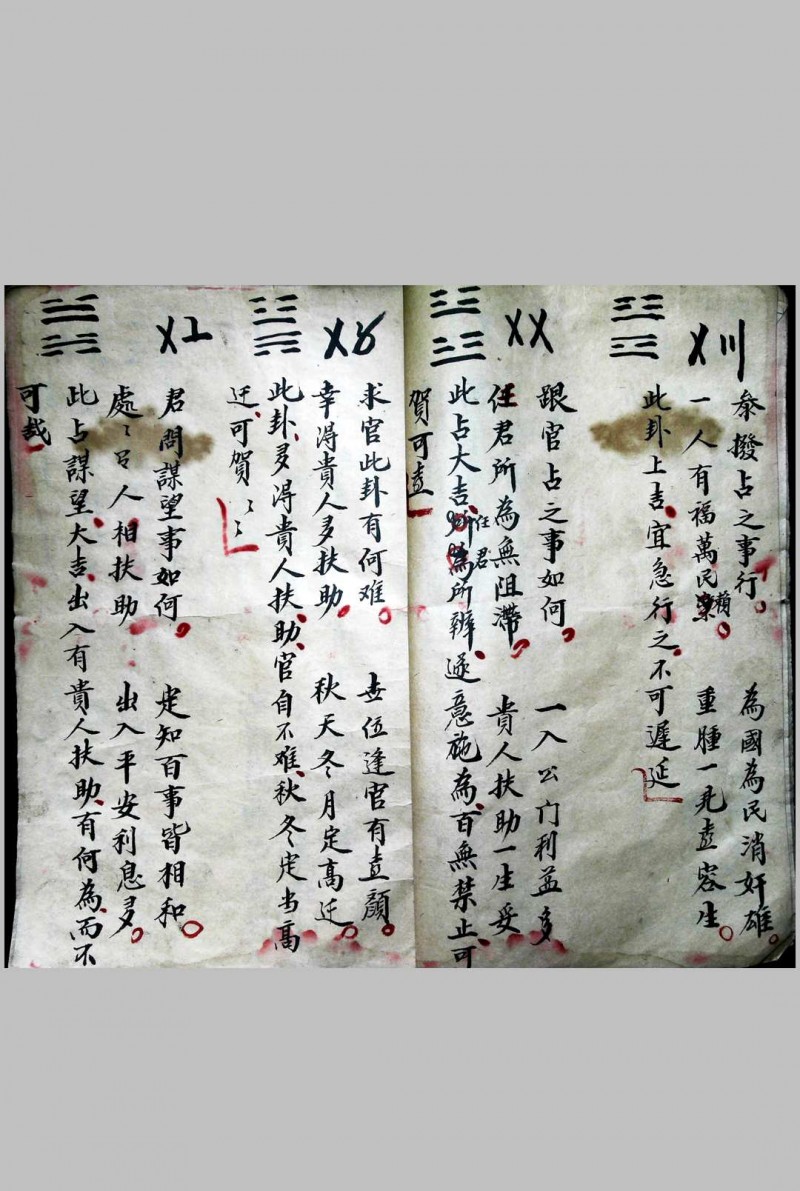 〤〣
參撥占之事行 為國為民消奸雄
一人有福萬民賴 重瞳一見喜容生
此卦上吉宜急行之不可遲延
〤〤
跟官占之事如何 一入公门利益多
任君所為無阻滯 貴人扶助一生妥
此占大吉任君所為所辦遂意施為百無禁止可
賀可喜
〤〥
求官此卦有何难 喜位逢官有喜顏
幸淂貴人多扶助 秋天冬月定高迁
此卦多淂貴人扶助官自不难秋冬定当高
迁可賀〻
〤〦
君問謀望事如何 定知百事皆相和
處〻吕人相扶助 出入平安利息多
此占謀望大吉出入有貴人扶助有何為而不
可哉